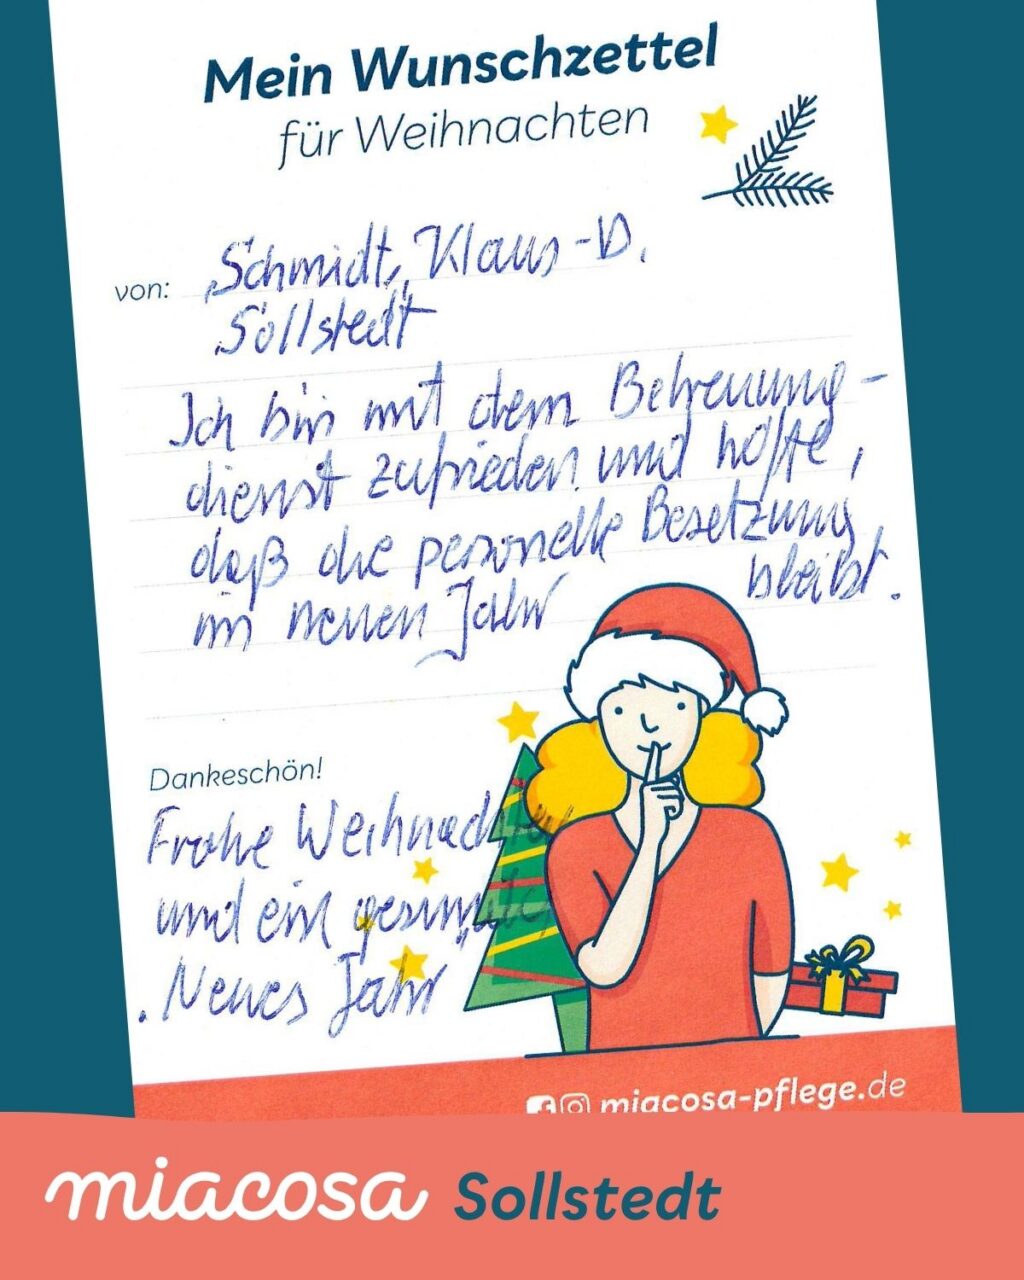 Mein Wunschzettel
für Weihnachten
von: Schmidt, Klaus-D.
Sollstedt
Ich bin mit dem Betreuung-
dienst zufrieden und hoffe,
daß die personelle Besetzung
im neuen Jahr bleibt.
Dankeschön!
Frohe Weihnachten
und ein gesundes
Neues Jahr
miacosa-pflege.de
miacosa Sollstedt